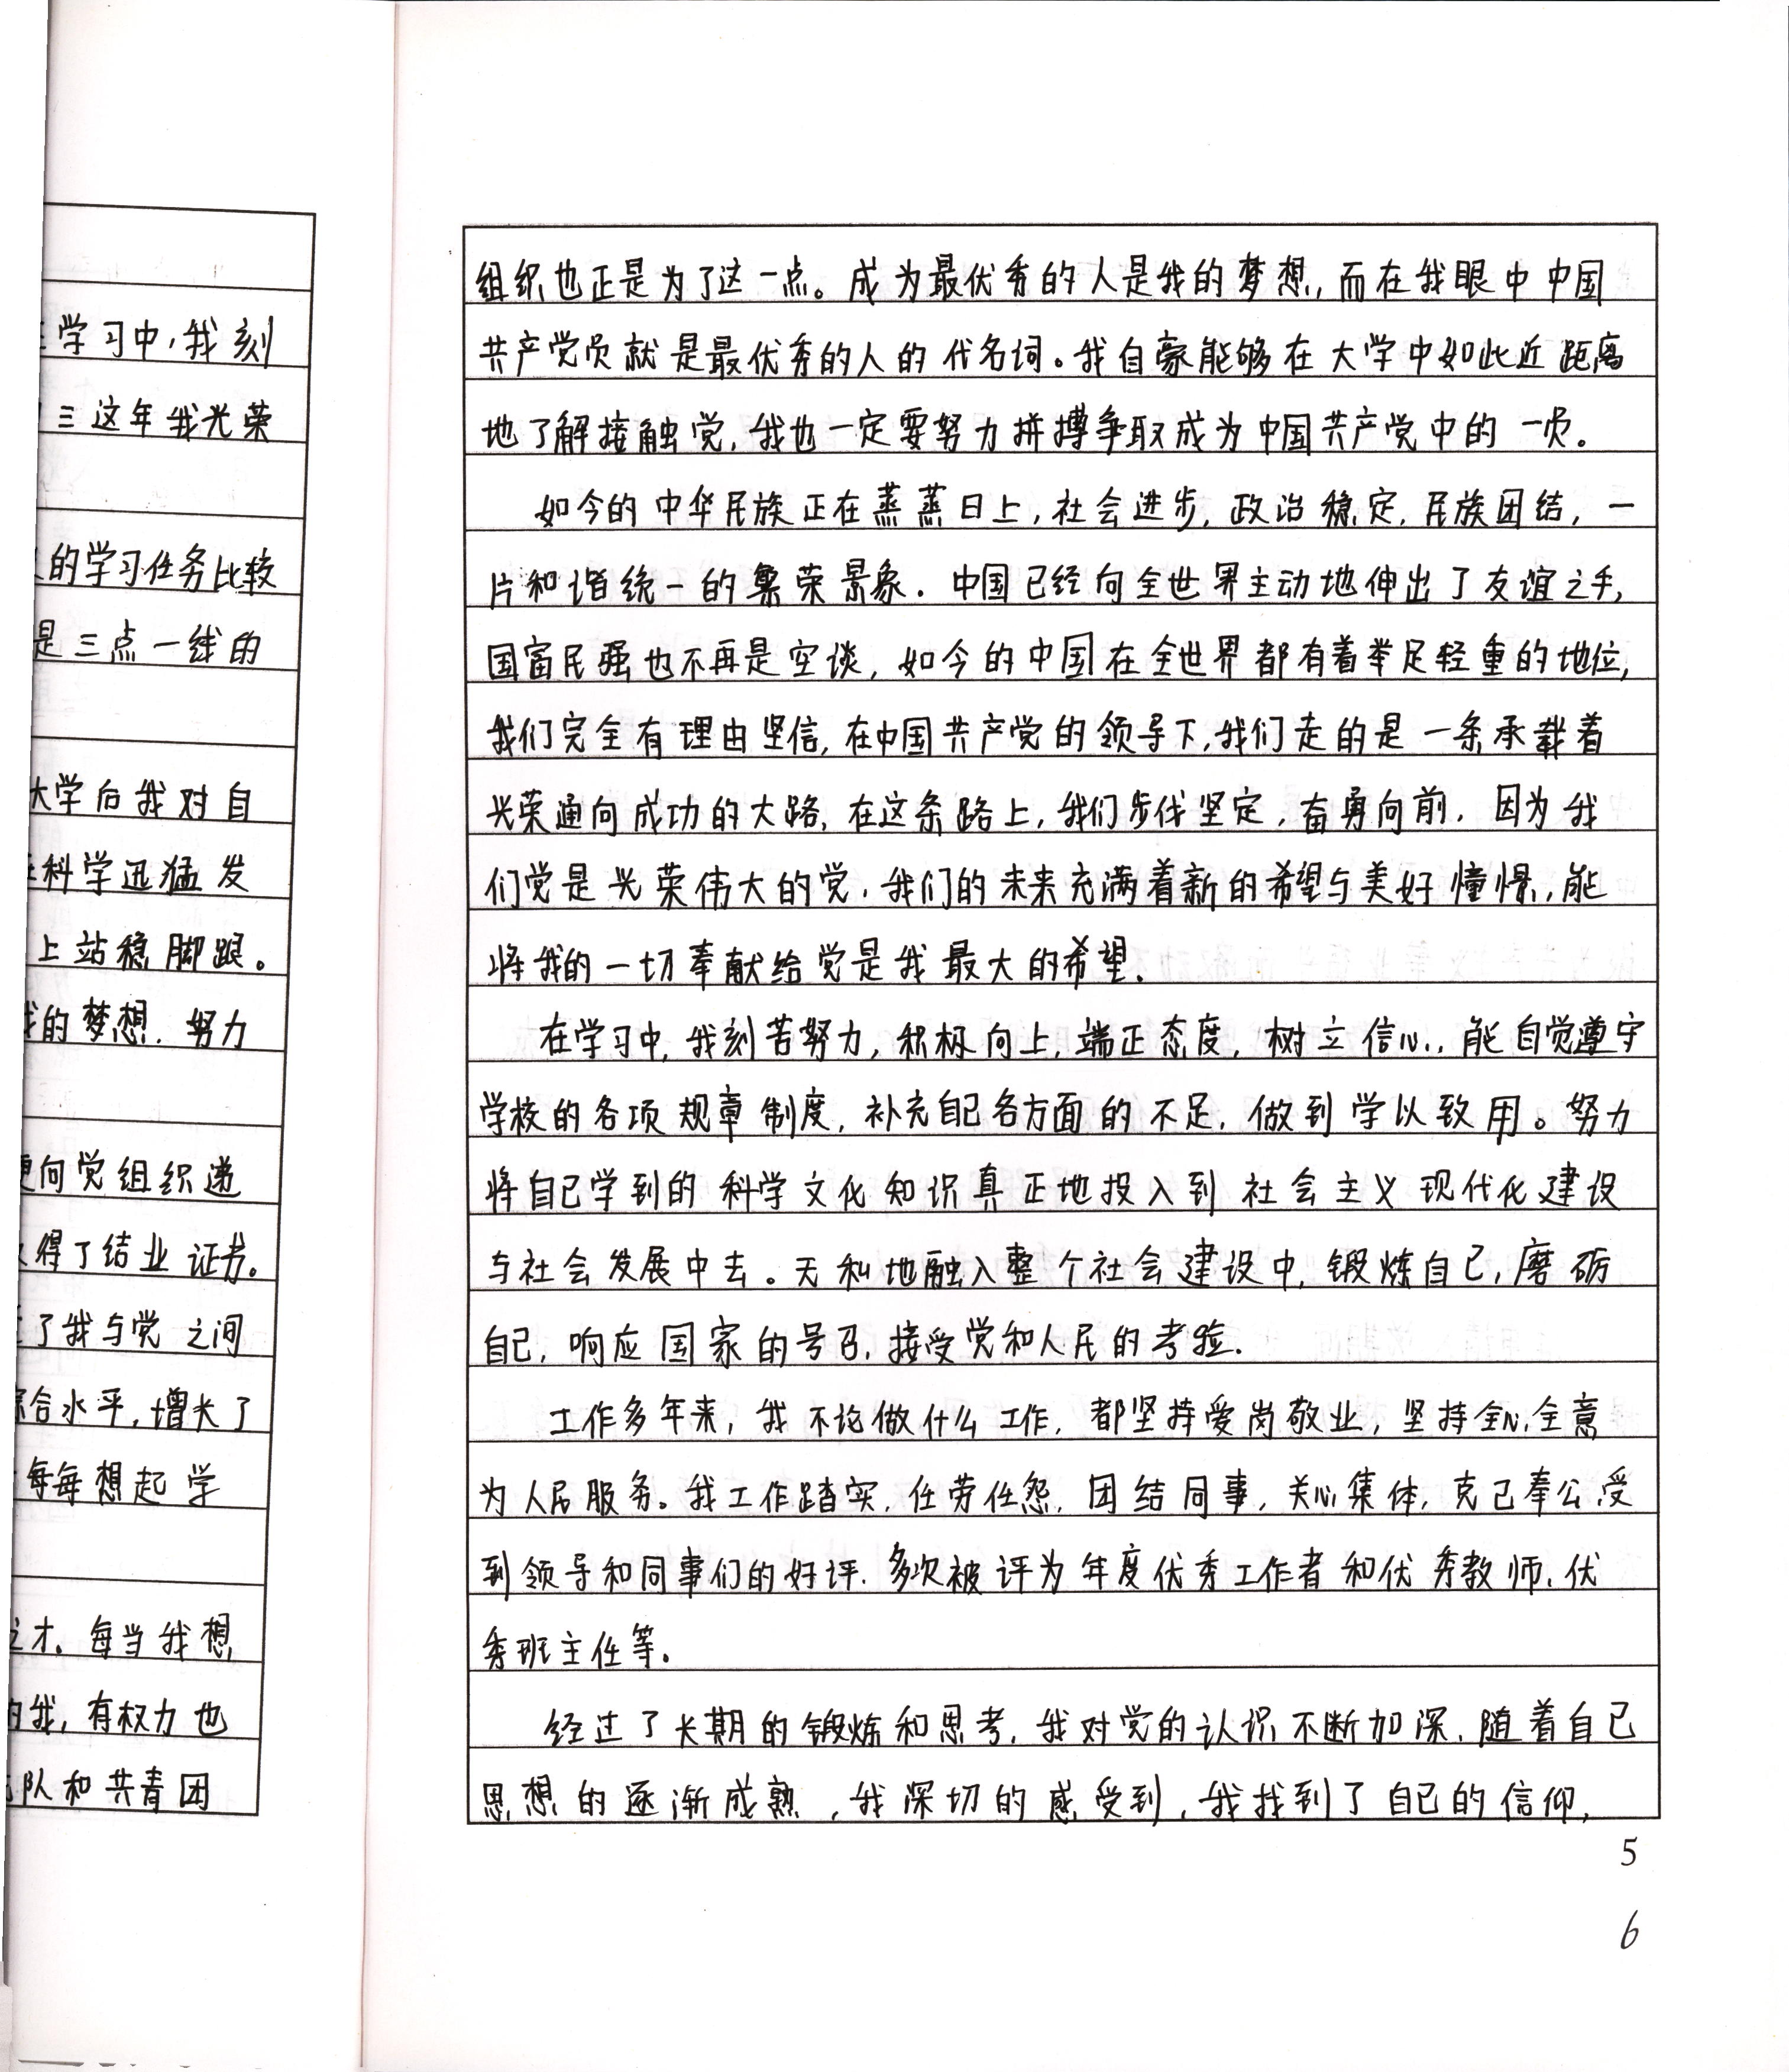 学习中,我刻
三这年我光荣
的学习任务比较
是三点一线的
大学后我对自
科学迅猛发
上站稳脚跟。
的梦想.努力
向党组织递
得了结业证书。
了我与党之间
合水平,增长了
每每想起学
才。每当我想
我,有权力也
队和共青团
组织也正是为了这一点。成为最优秀的人是我的梦想,而在我眼中中国
共产党员就是最优秀的人的代名词。我自豪能够在大学中如此近距离
地了解接触党,我也一定要努力拼搏争取成为中国共产党中的一员。
如今的中华民族正在蒸蒸日上,社会进步,政治稳定,民族团结,一
片和谐统一的繁荣景象.中国已经向全世界主动地伸出了友谊之手,
国富民强也不再是空谈,如今的中国在全世界都有着举足轻重的地位,
我们完全有理由坚信,在中国共产党的领导下,我们走的是一条承载着
光荣通向成功的大路,在这条路上,我们步伐坚定,奋勇向前.因为我
们党是光荣伟大的党.我们的未来充满着新的希望与美好憧憬,能
将我的一切奉献给党是我最大的希望.
在学习中,我刻苦努力,积极向上,端正态度,树立信心,能自觉遵守
学校的各项规章制度,补充自己各方面的不足,做到学以致用。努力
将自己学到的科学文化知识真正地投入到社会主义现代化建设
与社会发展中去。无私地融入整个社会建设中,锻炼自己,磨砺
自己,响应国家的号召,接受党和人民的考验.
工作多年来,我不论做什么工作,都坚持爱岗敬业,坚持全心全意
为人民服务。我工作踏实,任劳任怨,团结同事,关心集体,克己奉公,受
到领导和同事们的好评.多次被评为年度优秀工作者和优秀教师,优
秀班主任等。
经过了长期的锻炼和思考,我对党的认识不断加深,随着自己
思想的逐渐成熟,我深切的感受到,我找到了自己的信仰,
5
6